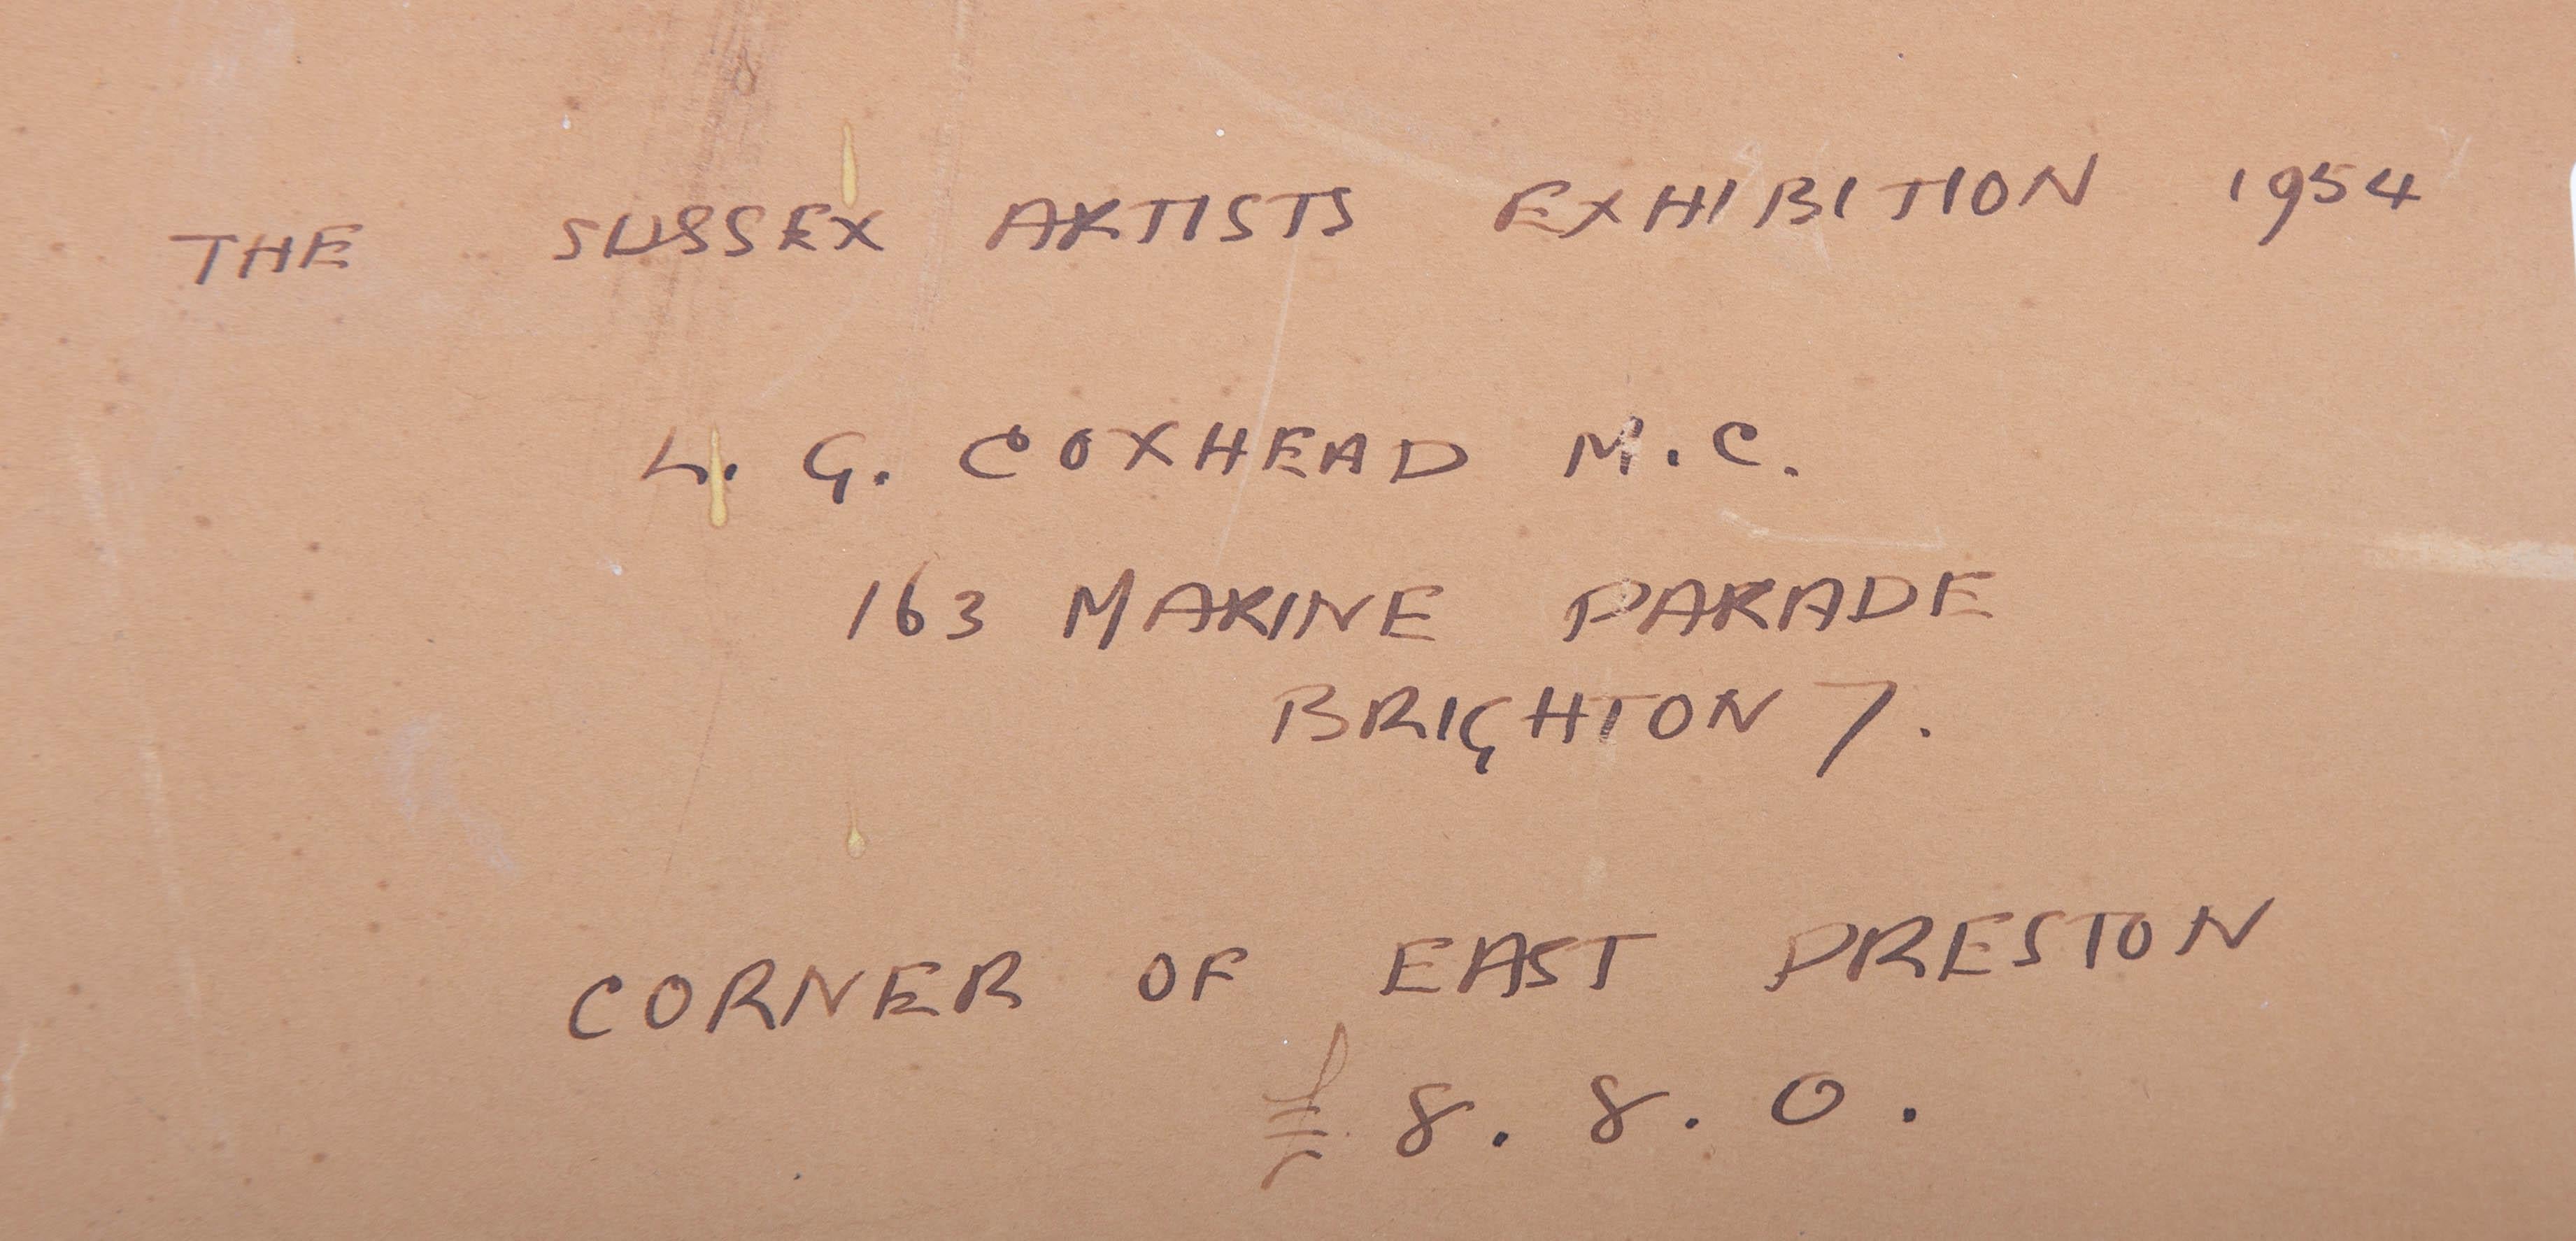 THE SUSSEX ARTISTS EXHIBITION 1954
L. G. COXHEAD M.C.
163 MARINE PARADE
BRIGHTON 7.
CORNER OF EAST PRESTON
£ 8. 8. 0.